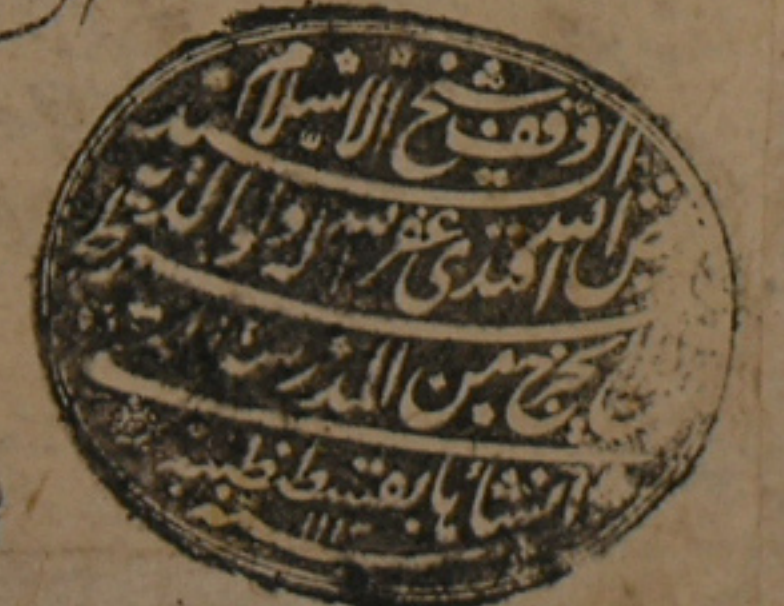 وقف شيخ الاسلام السيد
فيض الله افندى غفر الله له ولوالديه بشرط
ان لا يخرج من المدرسة التى
انشأها بقسطنطينية سنة ١١١٣